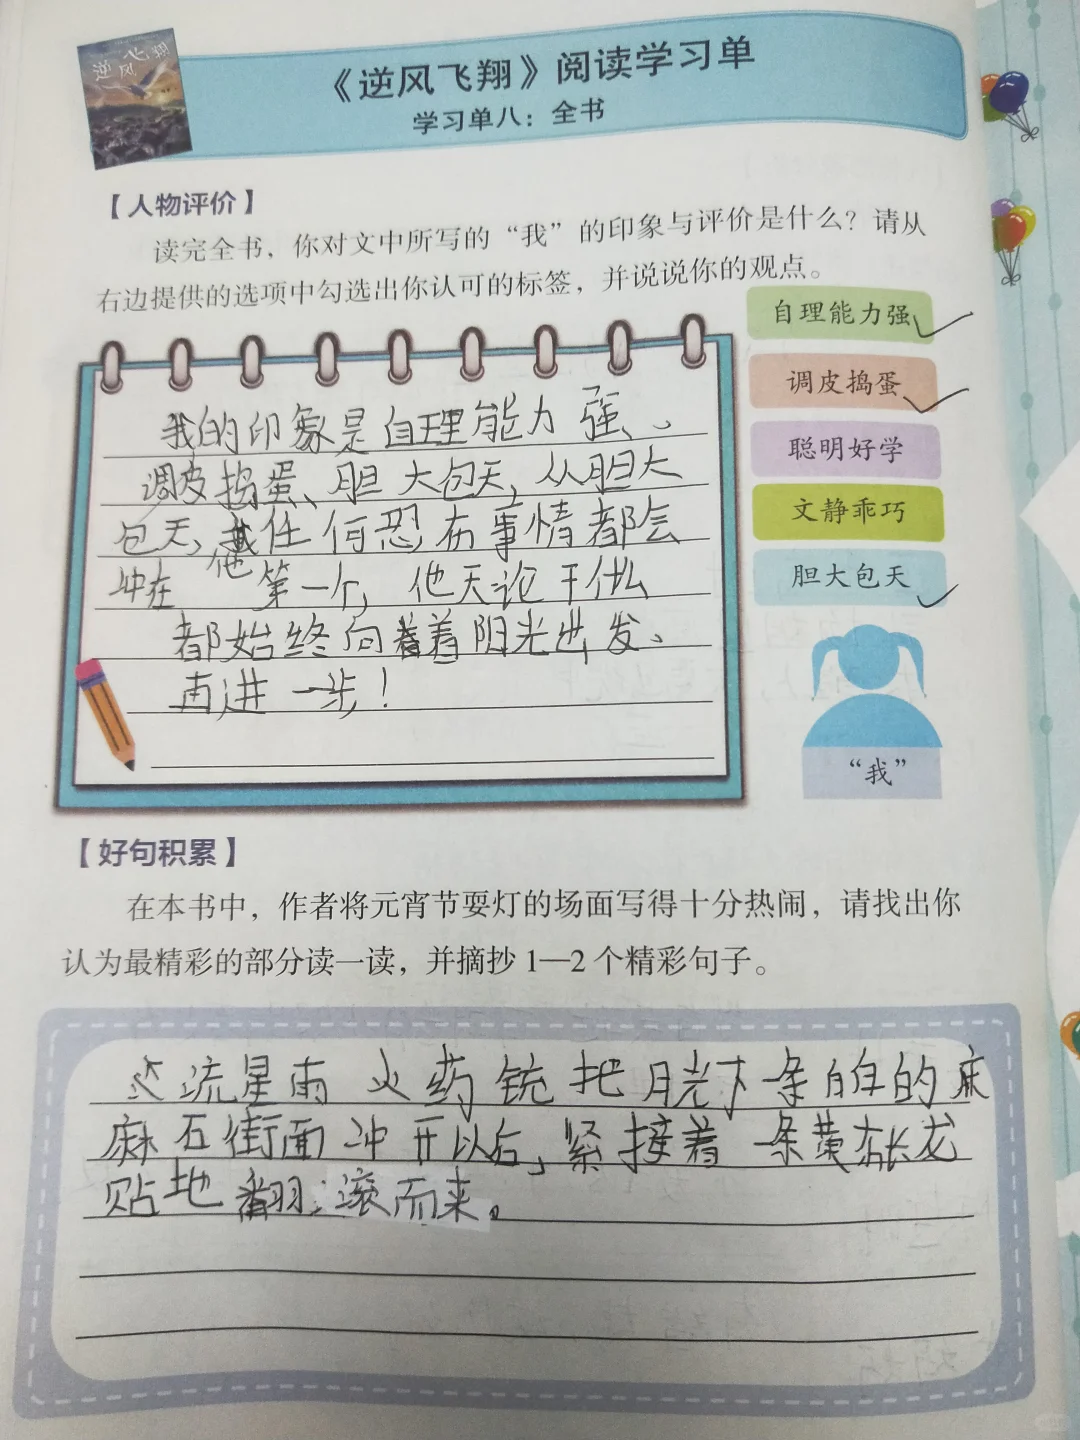 逆风飞翔
《逆风飞翔》阅读学习单
学习单八：全书
【人物评价】
读完全书，你对文中所写的“我”的印象与评价是什么？请从
右边提供的选项中勾选出你认可的标签，并说说你的观点。
自理能力强
调皮捣蛋
聪明好学
文静乖巧
胆大包天
“我”
我的印象是自理能力强、
调皮捣蛋、胆大包天，从胆大
包天，任何恐布事情都会
冲在他第一个，他无论干什么
都始终向着着阳光出发、
再进一步！
【好句积累】
在本书中，作者将元宵节耍灯的场面写得十分热闹，请找出你
认为最精彩的部分读一读，并摘抄 1—2 个精彩句子。
这流星雨 火药铳把月光下一条白的麻
麻石街面冲开以后，紧接着一条黄布长龙
贴地翻滚而来。